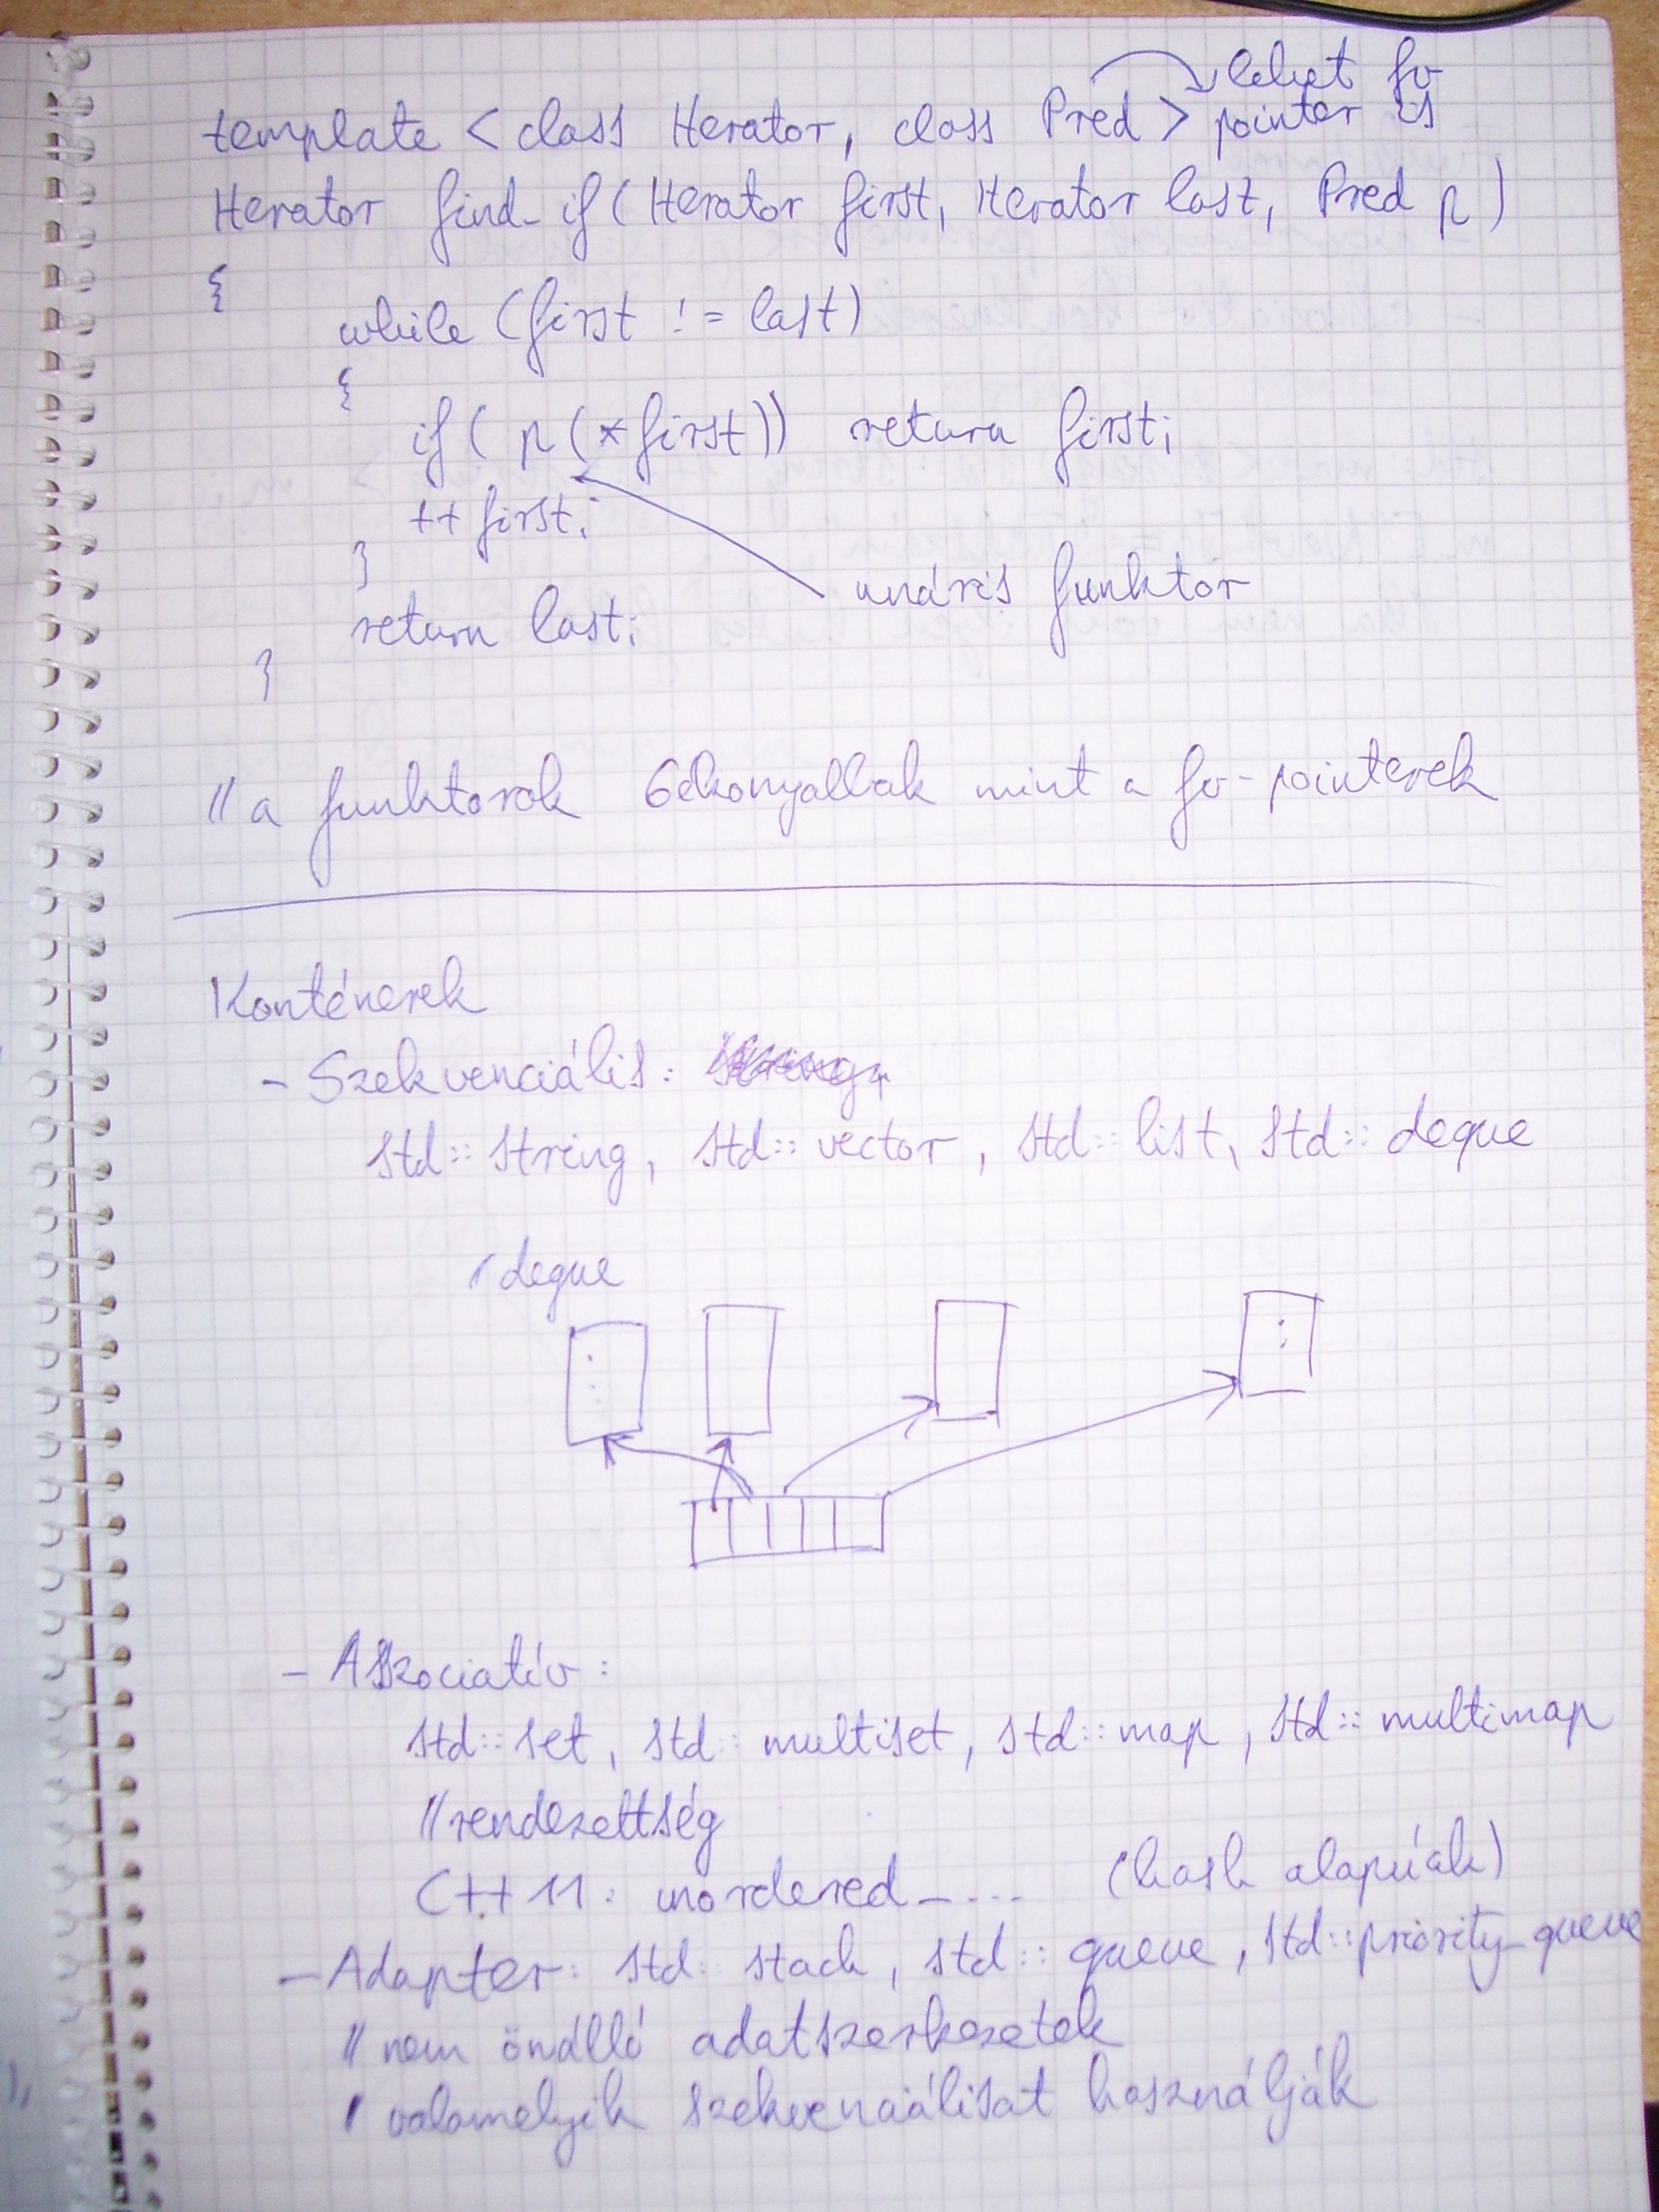 lehet fv
template < class Iterator, class Pred > pointer is
Iterator find_if( Iterator first, Iterator last, Pred p )
{
while (first != last)
{
if( p (*first)) return first;
++first;
}
unáris funktor
return last;
}
// a funktorok hékonyabbak mint a fv-pointerek
Konténerek
- Szekvenciális:
std::string, std::vector, std::list, std::deque
deque
- Asszociatív:
std::set, std::multiset, std::map, std::multimap
// rendezettség
C++11: unordered_ ... (hash alapúak)
- Adapter: std::stack, std::queue, std::priority_queue
// nem önálló adatszerkezetek
valamelyik szekvenciálisat használják